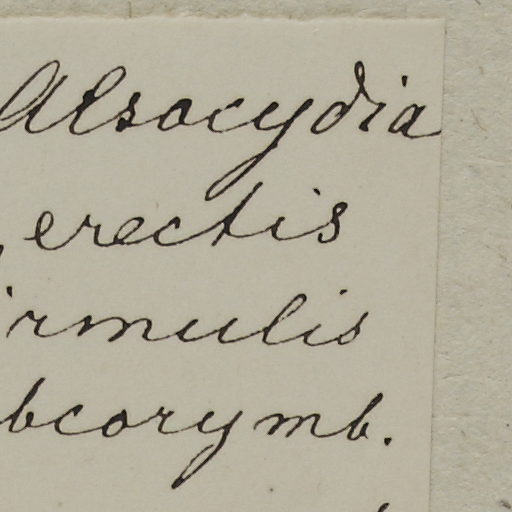 Alsocydia
, erectis
irmulis
bcorymb.